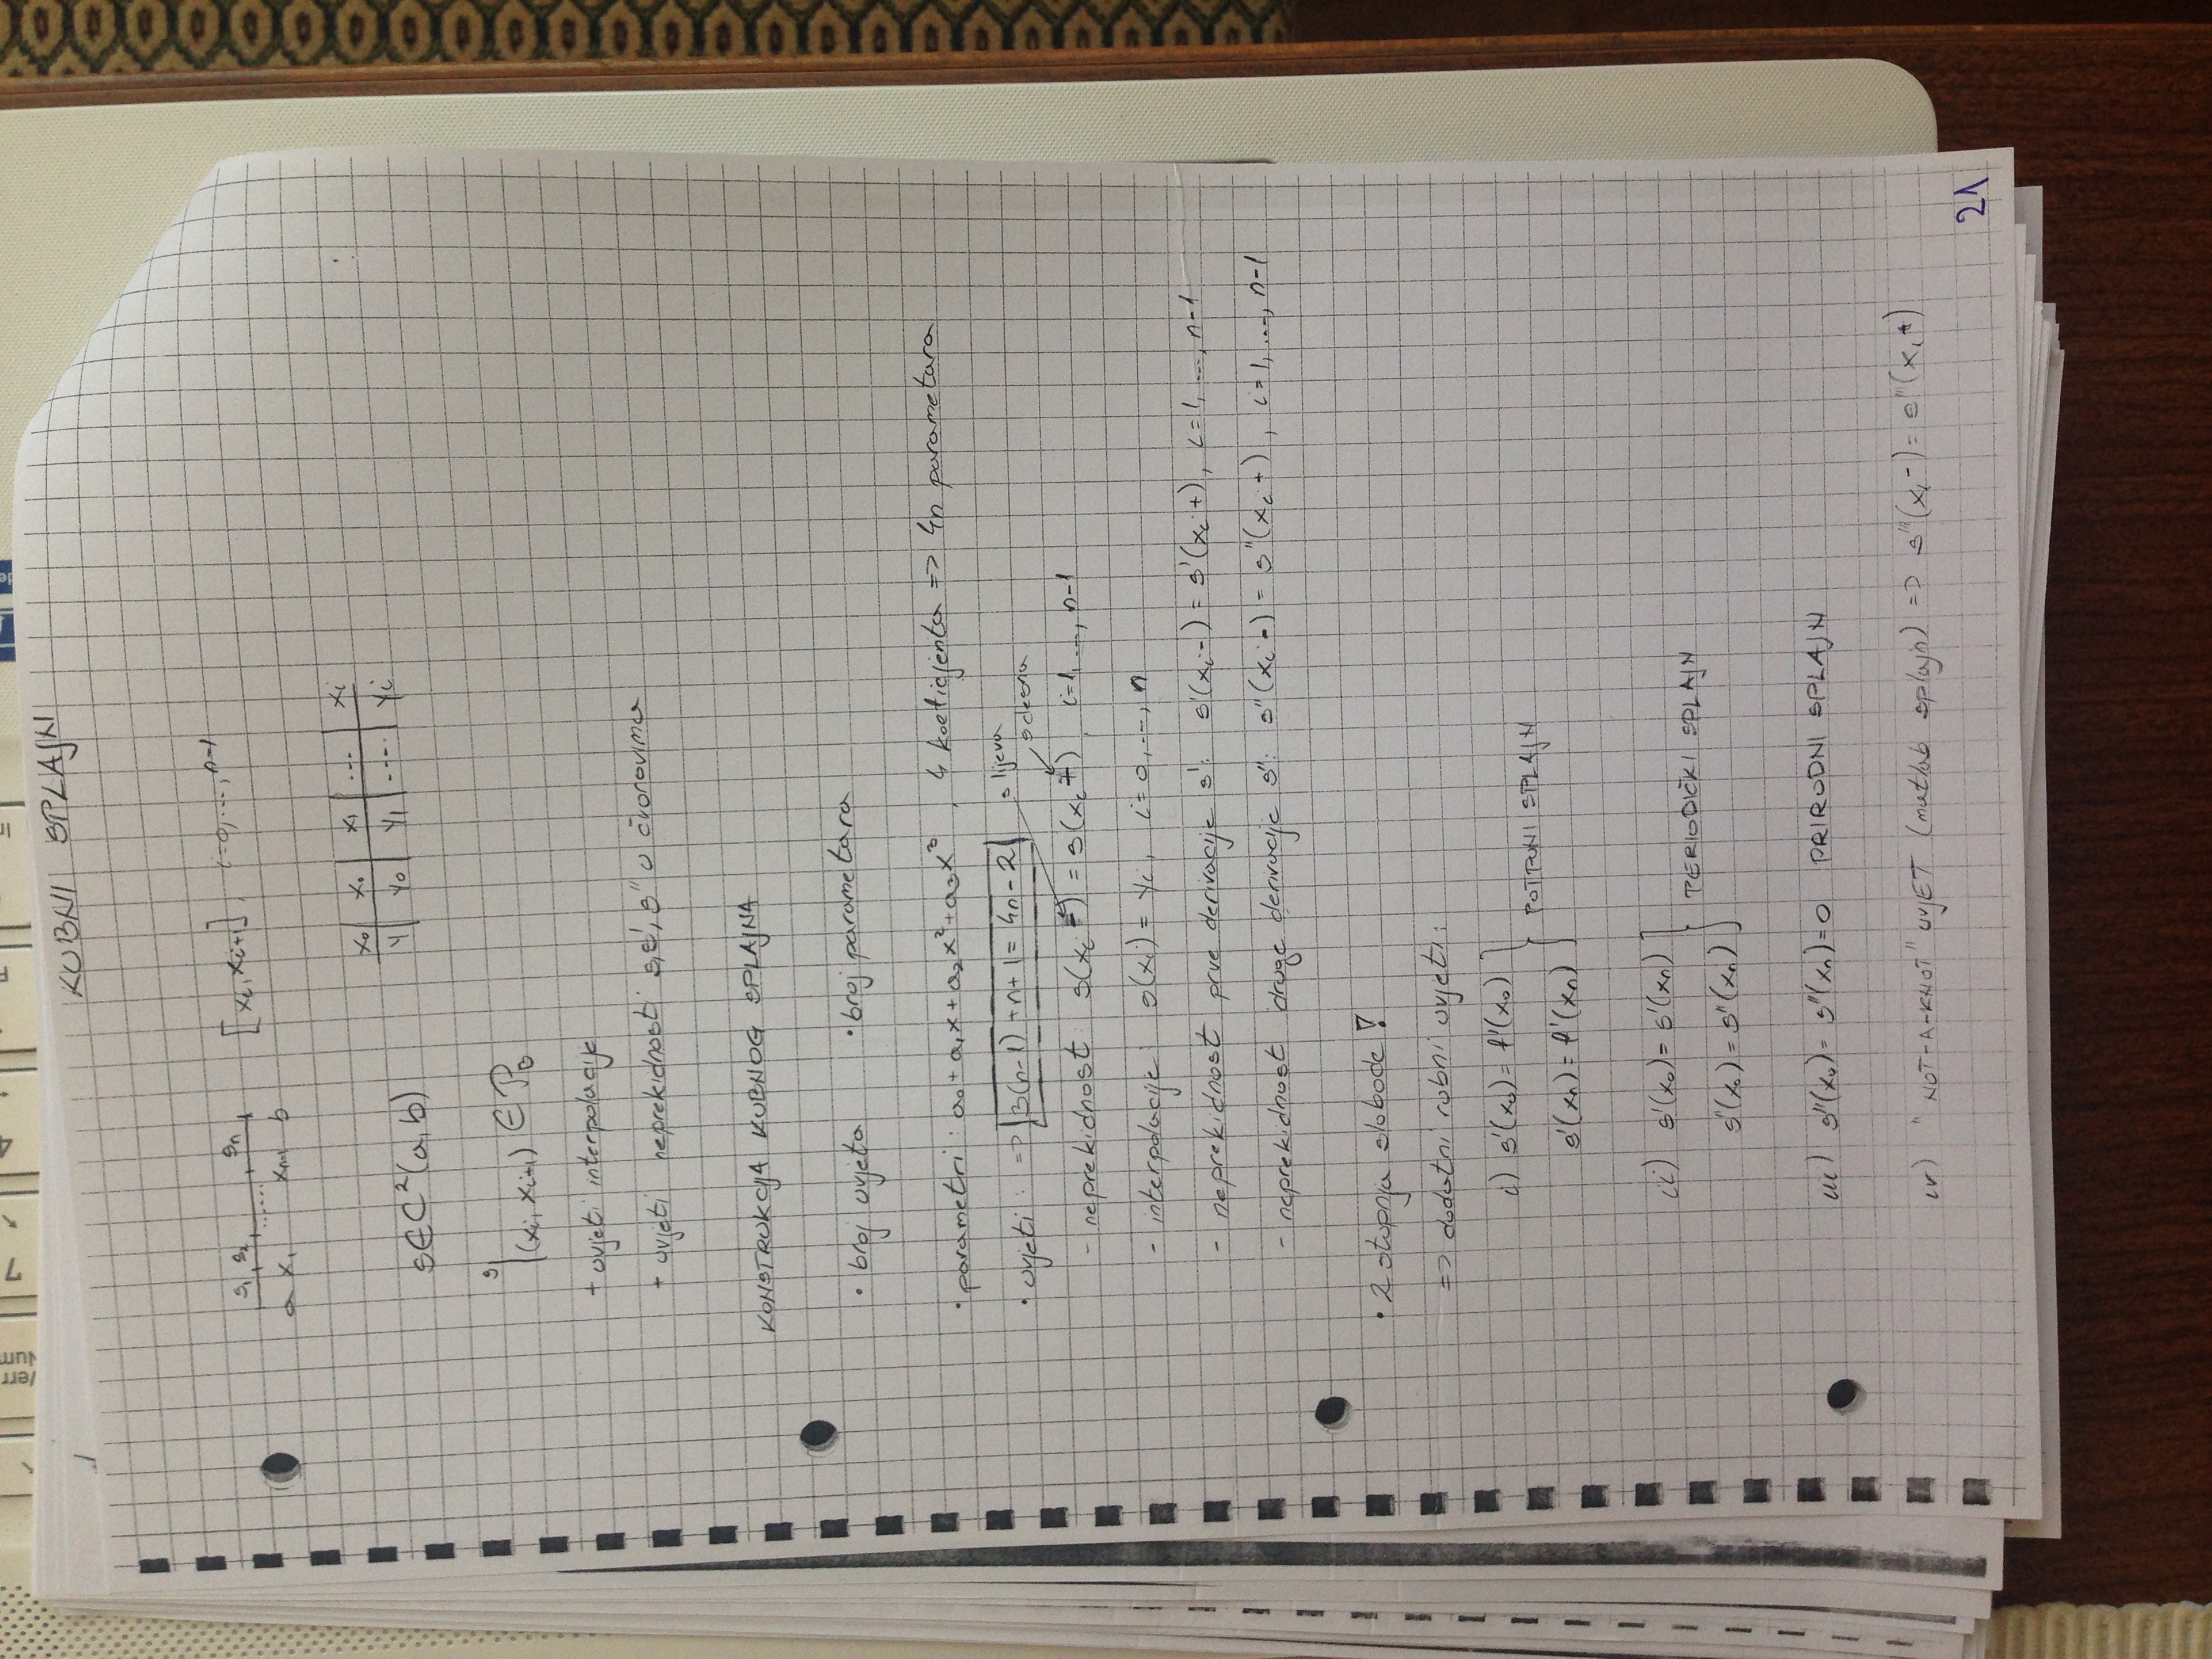 KUBNI SPLAJNI
s1 s2 ...... sn
a x1 xn-1 b
[xi, xi+1], i=0,...,n-1
x0 | x0 | x1 | ... | xi
y | y0 | y1 | .... | yi
s∈C²(a,b)
s|(xi, xi+1) ∈ P3
+ uvjeti interpolacije
+ uvjeti neprekidnosti s,s',s'' u čvorovima
KONSTRUKCIJA KUBNOG SPLAJNA
• broj uvjeta • broj parametara
• parametri: a0+a1x+a2x²+a3x³, 4 koeficjenta => 4n parametara
• uvjeti: => 3(n-1)+n+1=4n-2
s lijeva
s desna
- neprekidnost: s(xi-)=s(xi+), i=1,...,n-1
- interpolacije: s(xi)=yi, i=0,...,n
- neprekidnost prve derivacije s': s'(xi-)=s'(xi+), i=1,...,n-1
- neprekidnost druge derivacije s'': s''(xi-)=s''(xi+), i=1,...,n-1
• 2 stupnja slobode!
=> dodatni rubni uvjeti:
i) s'(x0)=f'(x0)
s'(xn)=f'(xn)
POTPUNI SPLAJN
ii) s'(x0)=s'(xn)
s''(x0)=s''(xn)
PERIODIČKI SPLAJN
iii) s''(x0)=s''(xn)=0 PRIRODNI SPLAJN
iv) "NOT-A-KNOT" UVJET (matlab splajn) => s'''(x1-)=s'''(x1+)
21